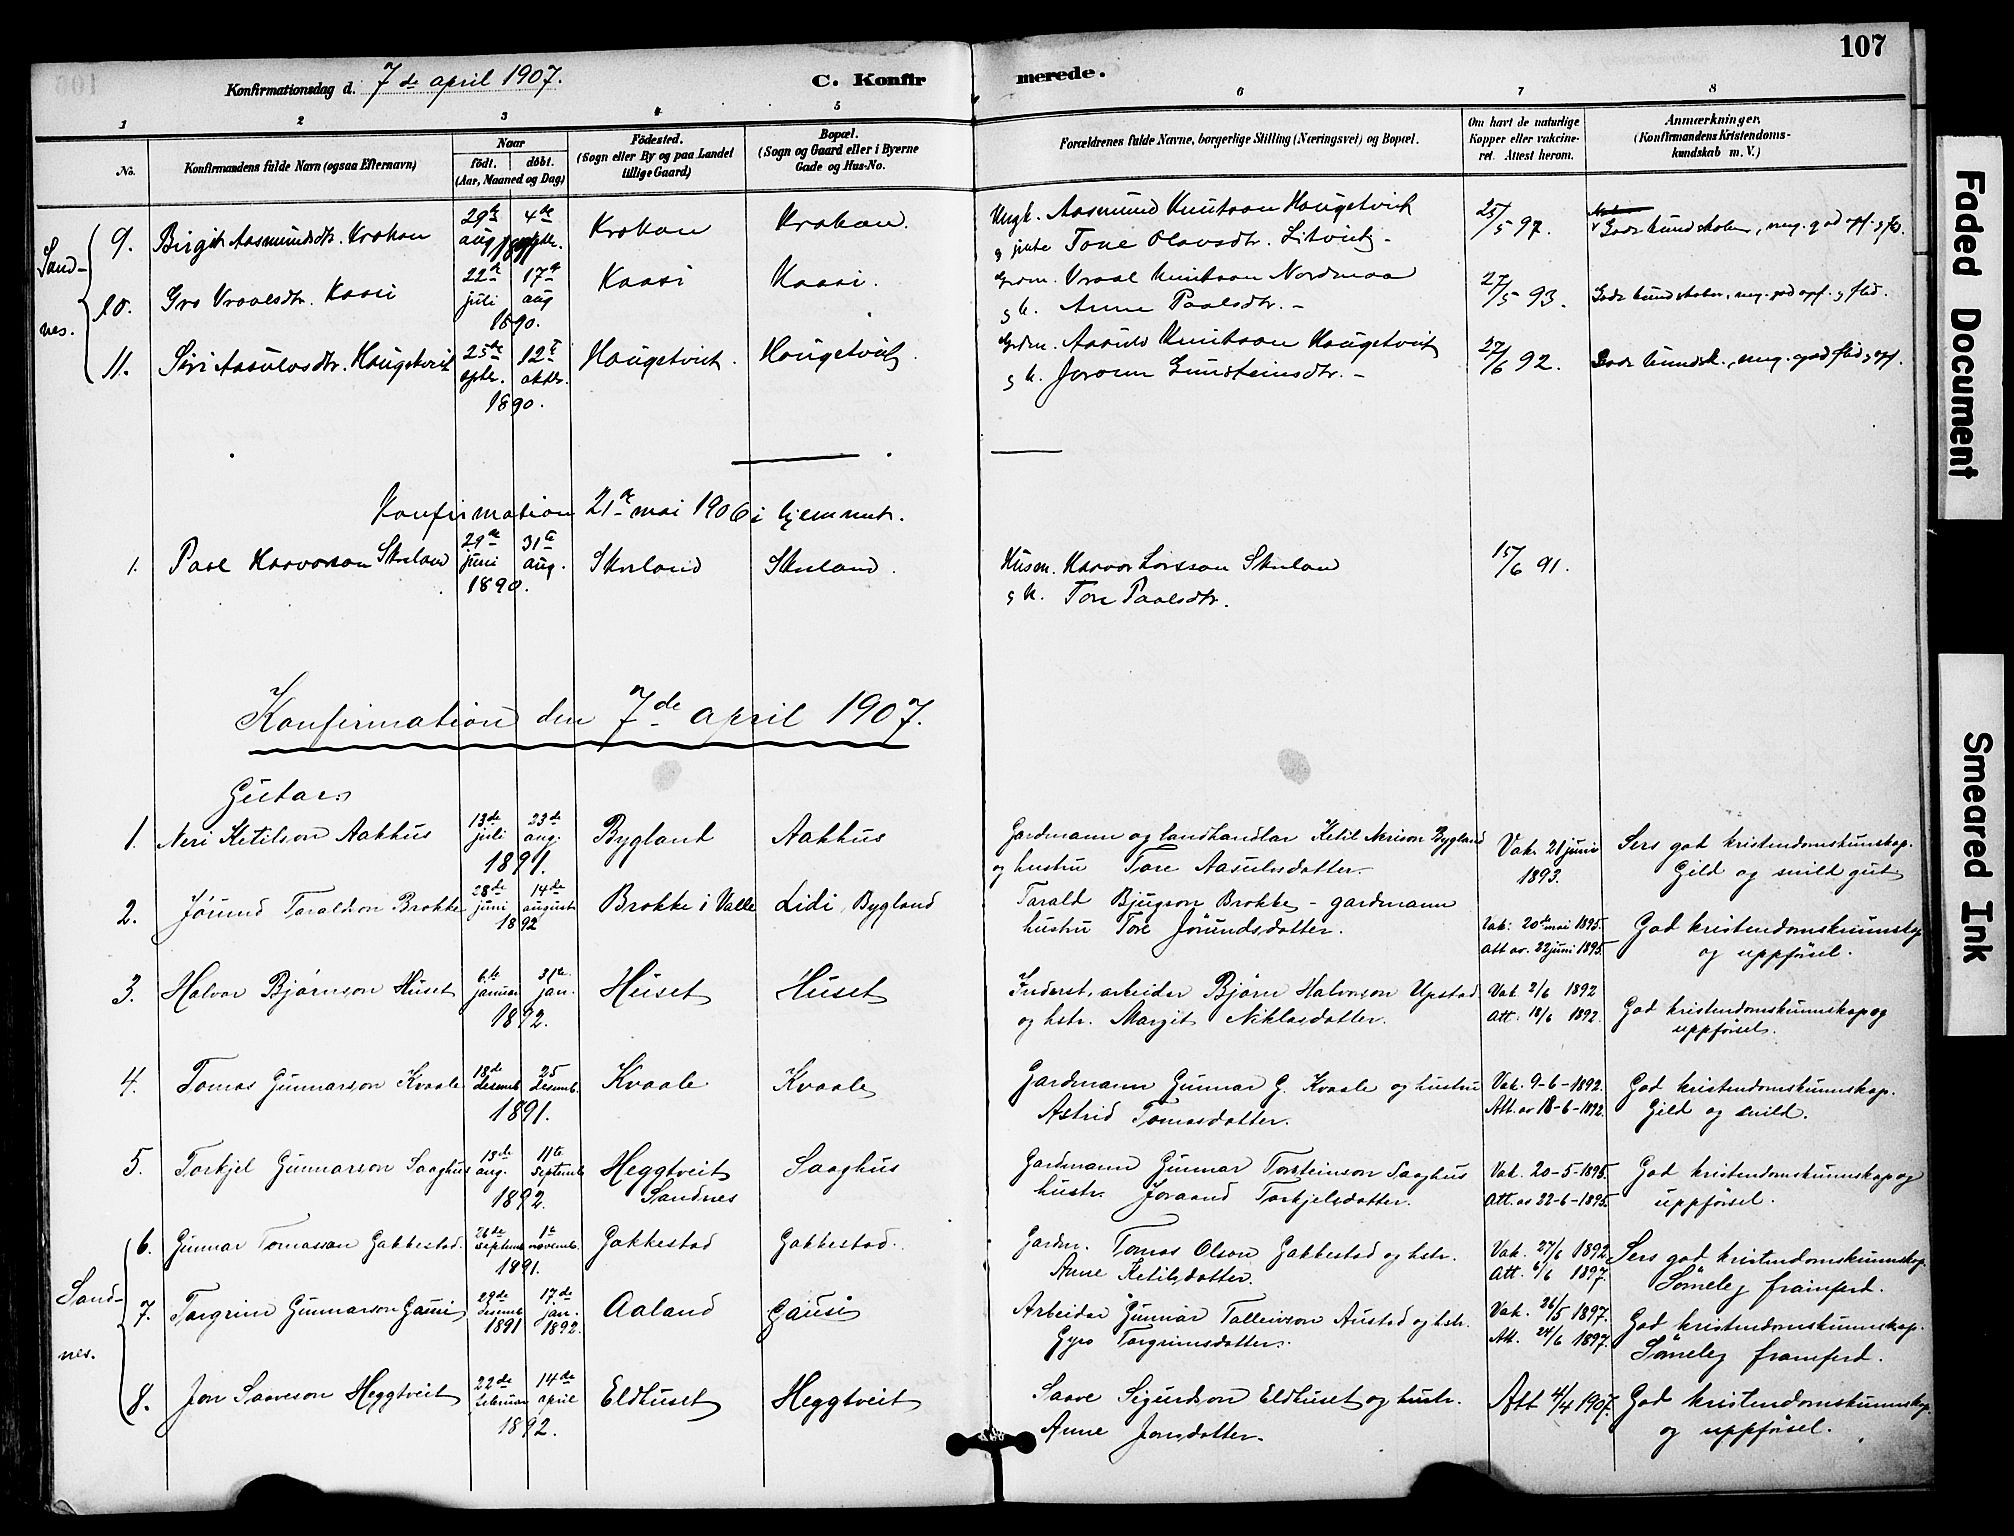 107
Konfirmationsdag d. 7de april 1907.
C. Konfirmerede.
1 2 3 4 5 6 7 8
No.
Konfirmandens fulde Navn (ogsaa Efternavn)
Naar
födt. döbt.
(Aar, Maaned og Dag)
Födested.
(Sogn eller By og paa Landet
tillige Gaard)
Bopæl.
(Sogn og Gaard eller i Byerne
Gade og Hus-No.
Forældrenes fulde Navne, borgerlige Stilling (Næringsvei) og Bopæl.
Om havt de naturlige
Kopper eller vakcine-
ret. Attest herom.
Anmærkninger.
(Konfirmandens Kristendoms-
kundskab m. V.)
Sand-
nes.
9. Birgit Aasmundsdtr. Krokan 29de aug 4de Krokan Krokan. Ungk. Aasmund Knutson Haugetvit
g pike Tone Olavsdtr. Litveit 25/5 97.
10. Gro Vraalsdtr. Kaasi 22de juli 17de aug 1890. Kaasi Kaasi. Grdm. Vraal Knutson Nordmaa
g k. Anne Paalsdtr. 27/5 93.
11. Siri Aasulvsdtr. Haugetveit 25de sptr. 12te oktbr. 1890. Haugetvit. Haugetvit Grdm. Aasulv Knutson Haugetvit
g k. Joronn Gunsteinsdtr. 27/6 92.
Konfirmation 21de mai 1906 i hjemmet.
1. Paal Havorson Skuland 29de juni 31te aug. 1890. Skuland Skuland. Husm. Havor Larsson Skulan
g k. Tore Paalsdtr. 15/6 91.
Konfirmation den 7de april 1907.
Gutar:
1. Neri Ketilson Aakhus 13de juli 23de aug. 1891. Bygland Aakhus Gardmann og landhandlar Ketil Nerison Bygland
og hustru Tore Aasulvsdatter. Vak. 21 juni
1893. Sers god kristendomskunskap.
Gild og snild gut
2. Jörund Taraldson Brokke 28de juni 14de august 1892 Brokke i Valle Lidi, Bygland Tarald Bjugson Brokke - gardmann
hustru Tore Jörundsdatter. Vak: 20de mai 1895.
Att av. 22 juni 1895. God kristendomskunnskap
og uppförsel.
3. Halvor Björnson Huset 6te januar 31te jan. 1892. Huset Huset Inderst, arbeider Björn Halvorson Upstad
og hstr. Margit Niklosdatter. Vak 2/6 1892
Att: 18/6 1892. God kristendomskunnskap og
uppförsel.
4. Tomas Gunnarson Kvaale 18de desemb 25 desemb. 1891. Kvaale Kvaale Gardmann Gunnar G. Kvaale og hustru
Astrid Tomasdatter. Vak. 9-6-1892.
Att. av 18-6-1892. God kristendomskunnskap.
Gild og snild.
5. Torkjel Gunnarson Saaghus 13de aug. 11te septemb 1892. Heggtveit
Sandnes Saaghus Gardmann Gunnar Torsteinson Saaghus
hustr. Joraand Torkjelsdatter. Vak. 20-5-1895.
Att. av 22-6-1895. God kristendomskunnskap og
uppförsel.
Sand-
nes.
6. Gunnar Tomasson Gakkestad. 26de septemb 1te novemb. 1891. Gakkestad Gakkestad. Gardm. Tomas Olson Gakkestad og hstr.
Anne Ketilsdatter. Vak. 27/6 1892
Att. 6/6 1897. Sers god kristendomskunnskap.
Sömeleg framferd.
7. Torgrim Gunnarson Gausi 29de desemb 1891 17de jan. 1892. Aaland Gausi Arbeider Gunnar Tolleivson Austad og hstr.
Gyro Torgrimsdatter. Vak. 26/5 1897.
Att. 24/6 1897. God kristendomskunnskap.
Sömeleg framferd.
8. Jon Saaveson Heggtveit 22de februar 14de april 1892. Eldhuset Heggtveit Saave Sigurdson Eldhuset og hustr.
Anne Jonsdatter. Att 4/4 1907. God kristendomskunnskap
og uppförsel.
Faded Document
Smeared Ink